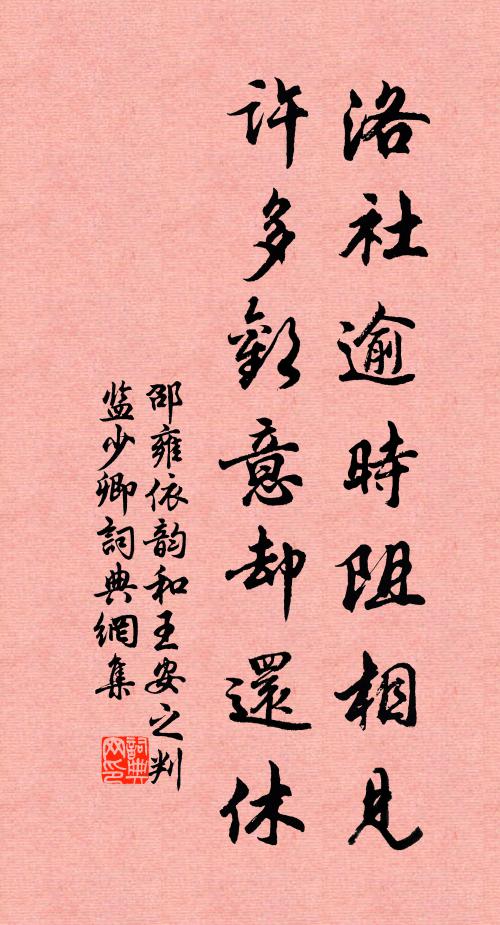 洛社逾時阻相見
許多歡意却還休
邵雍依韵和王安之判
监少卿詞典網集
詞典网印